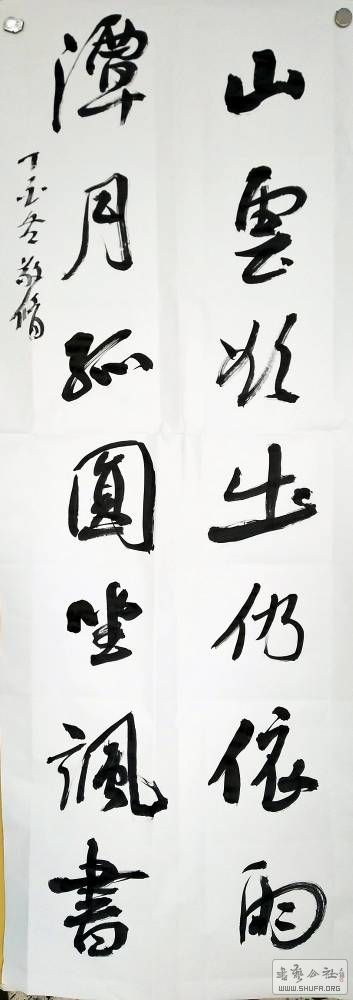 山雲欲出仍依雨
潭月孤圓坐諷書
丁酉冬敬脩
書藝公社
WWW.SHUFA.ORG